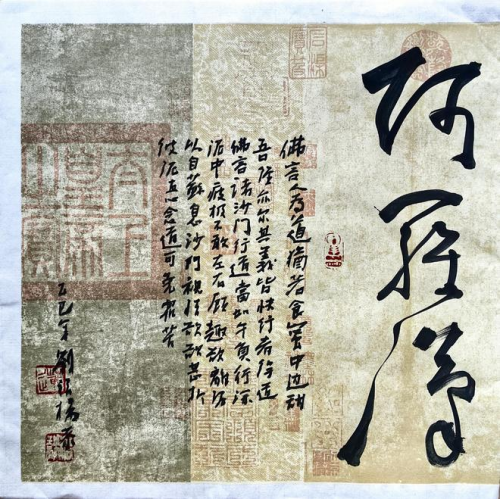 阿羅漢
佛言人为道猶若食蜜中边甜
吾經亦尔其義皆快行者得道
佛言諸沙门行道當如牛負行深
泥中疲極不敢左右顧趣欲離泥
以自蘇息沙门視情欲甚於
彼泥直心念道可免眾苦
乙巳年劉
太上
皇帝
之寶